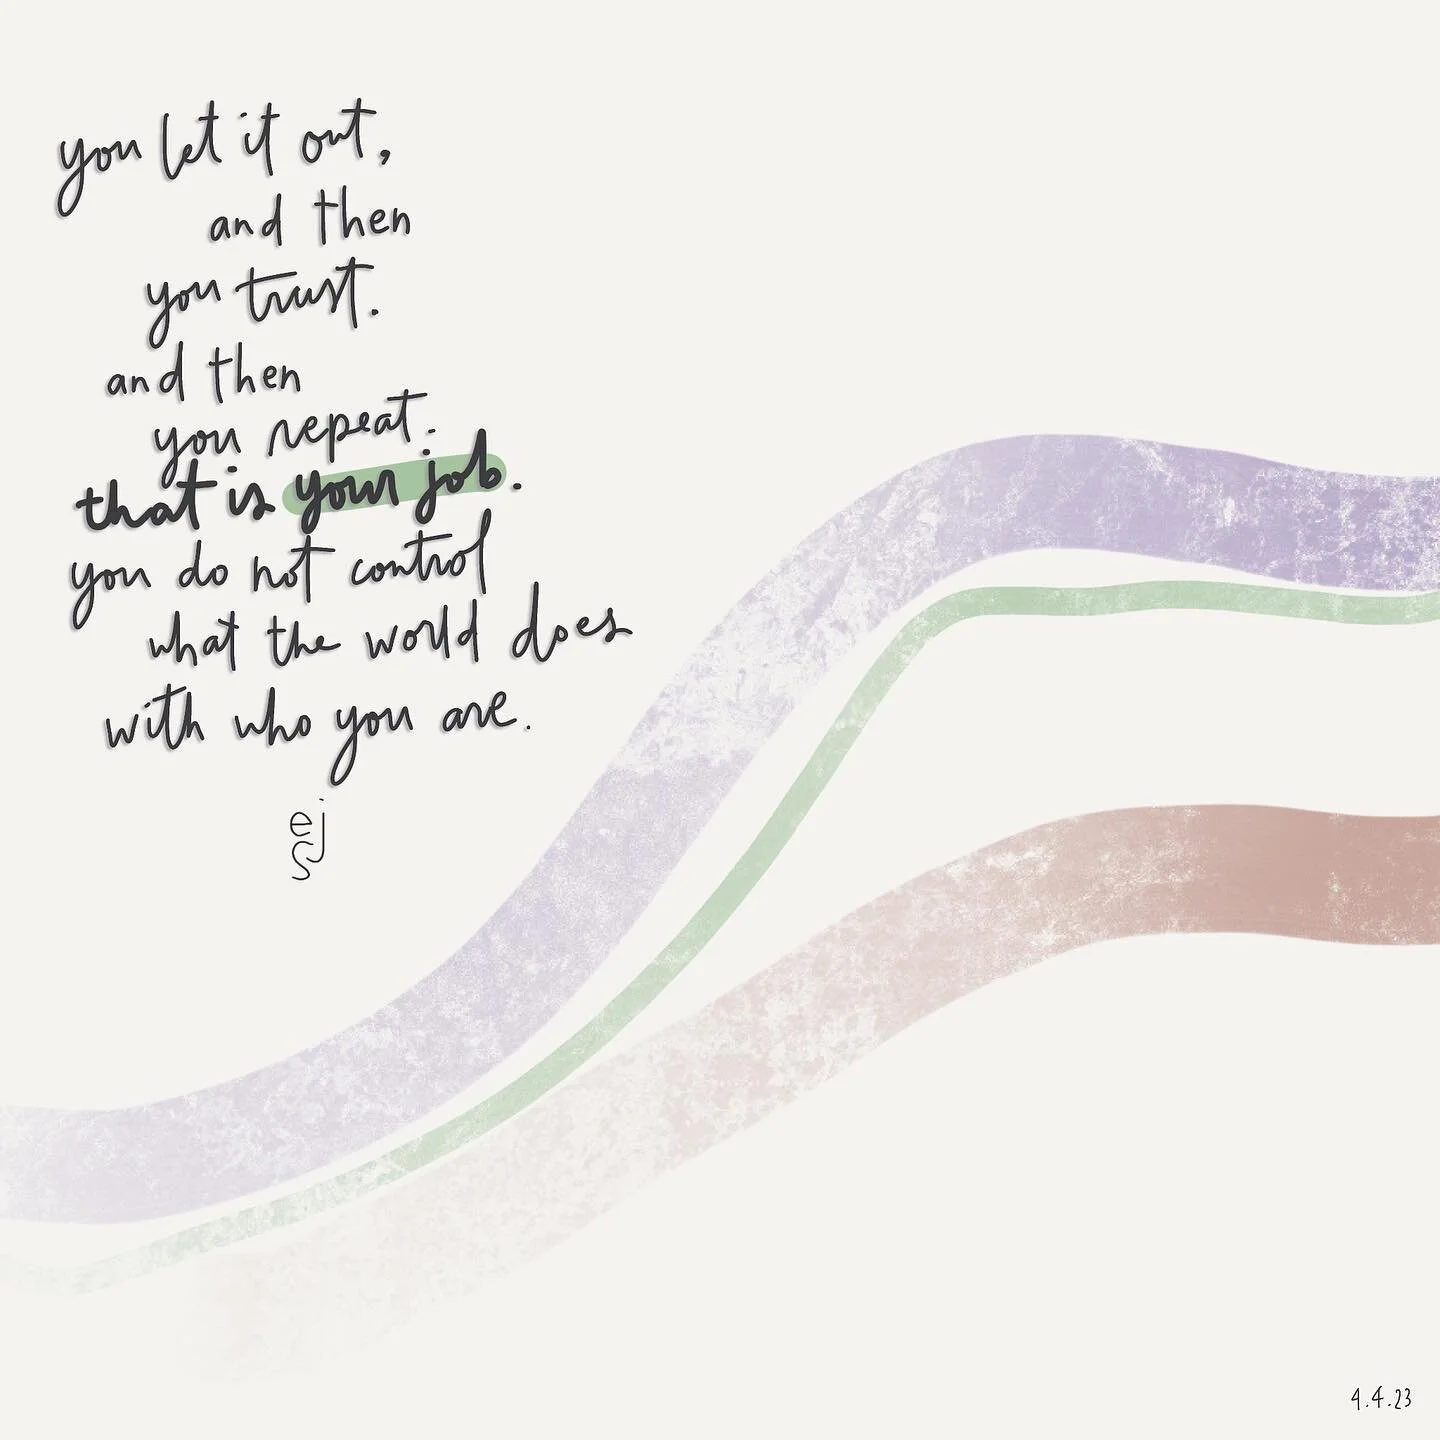 you let it out,
and then
you trust.
and then
you repeat.
that is your job.
you do not control
what the world does
with who you are.
ej
s
4.4.23